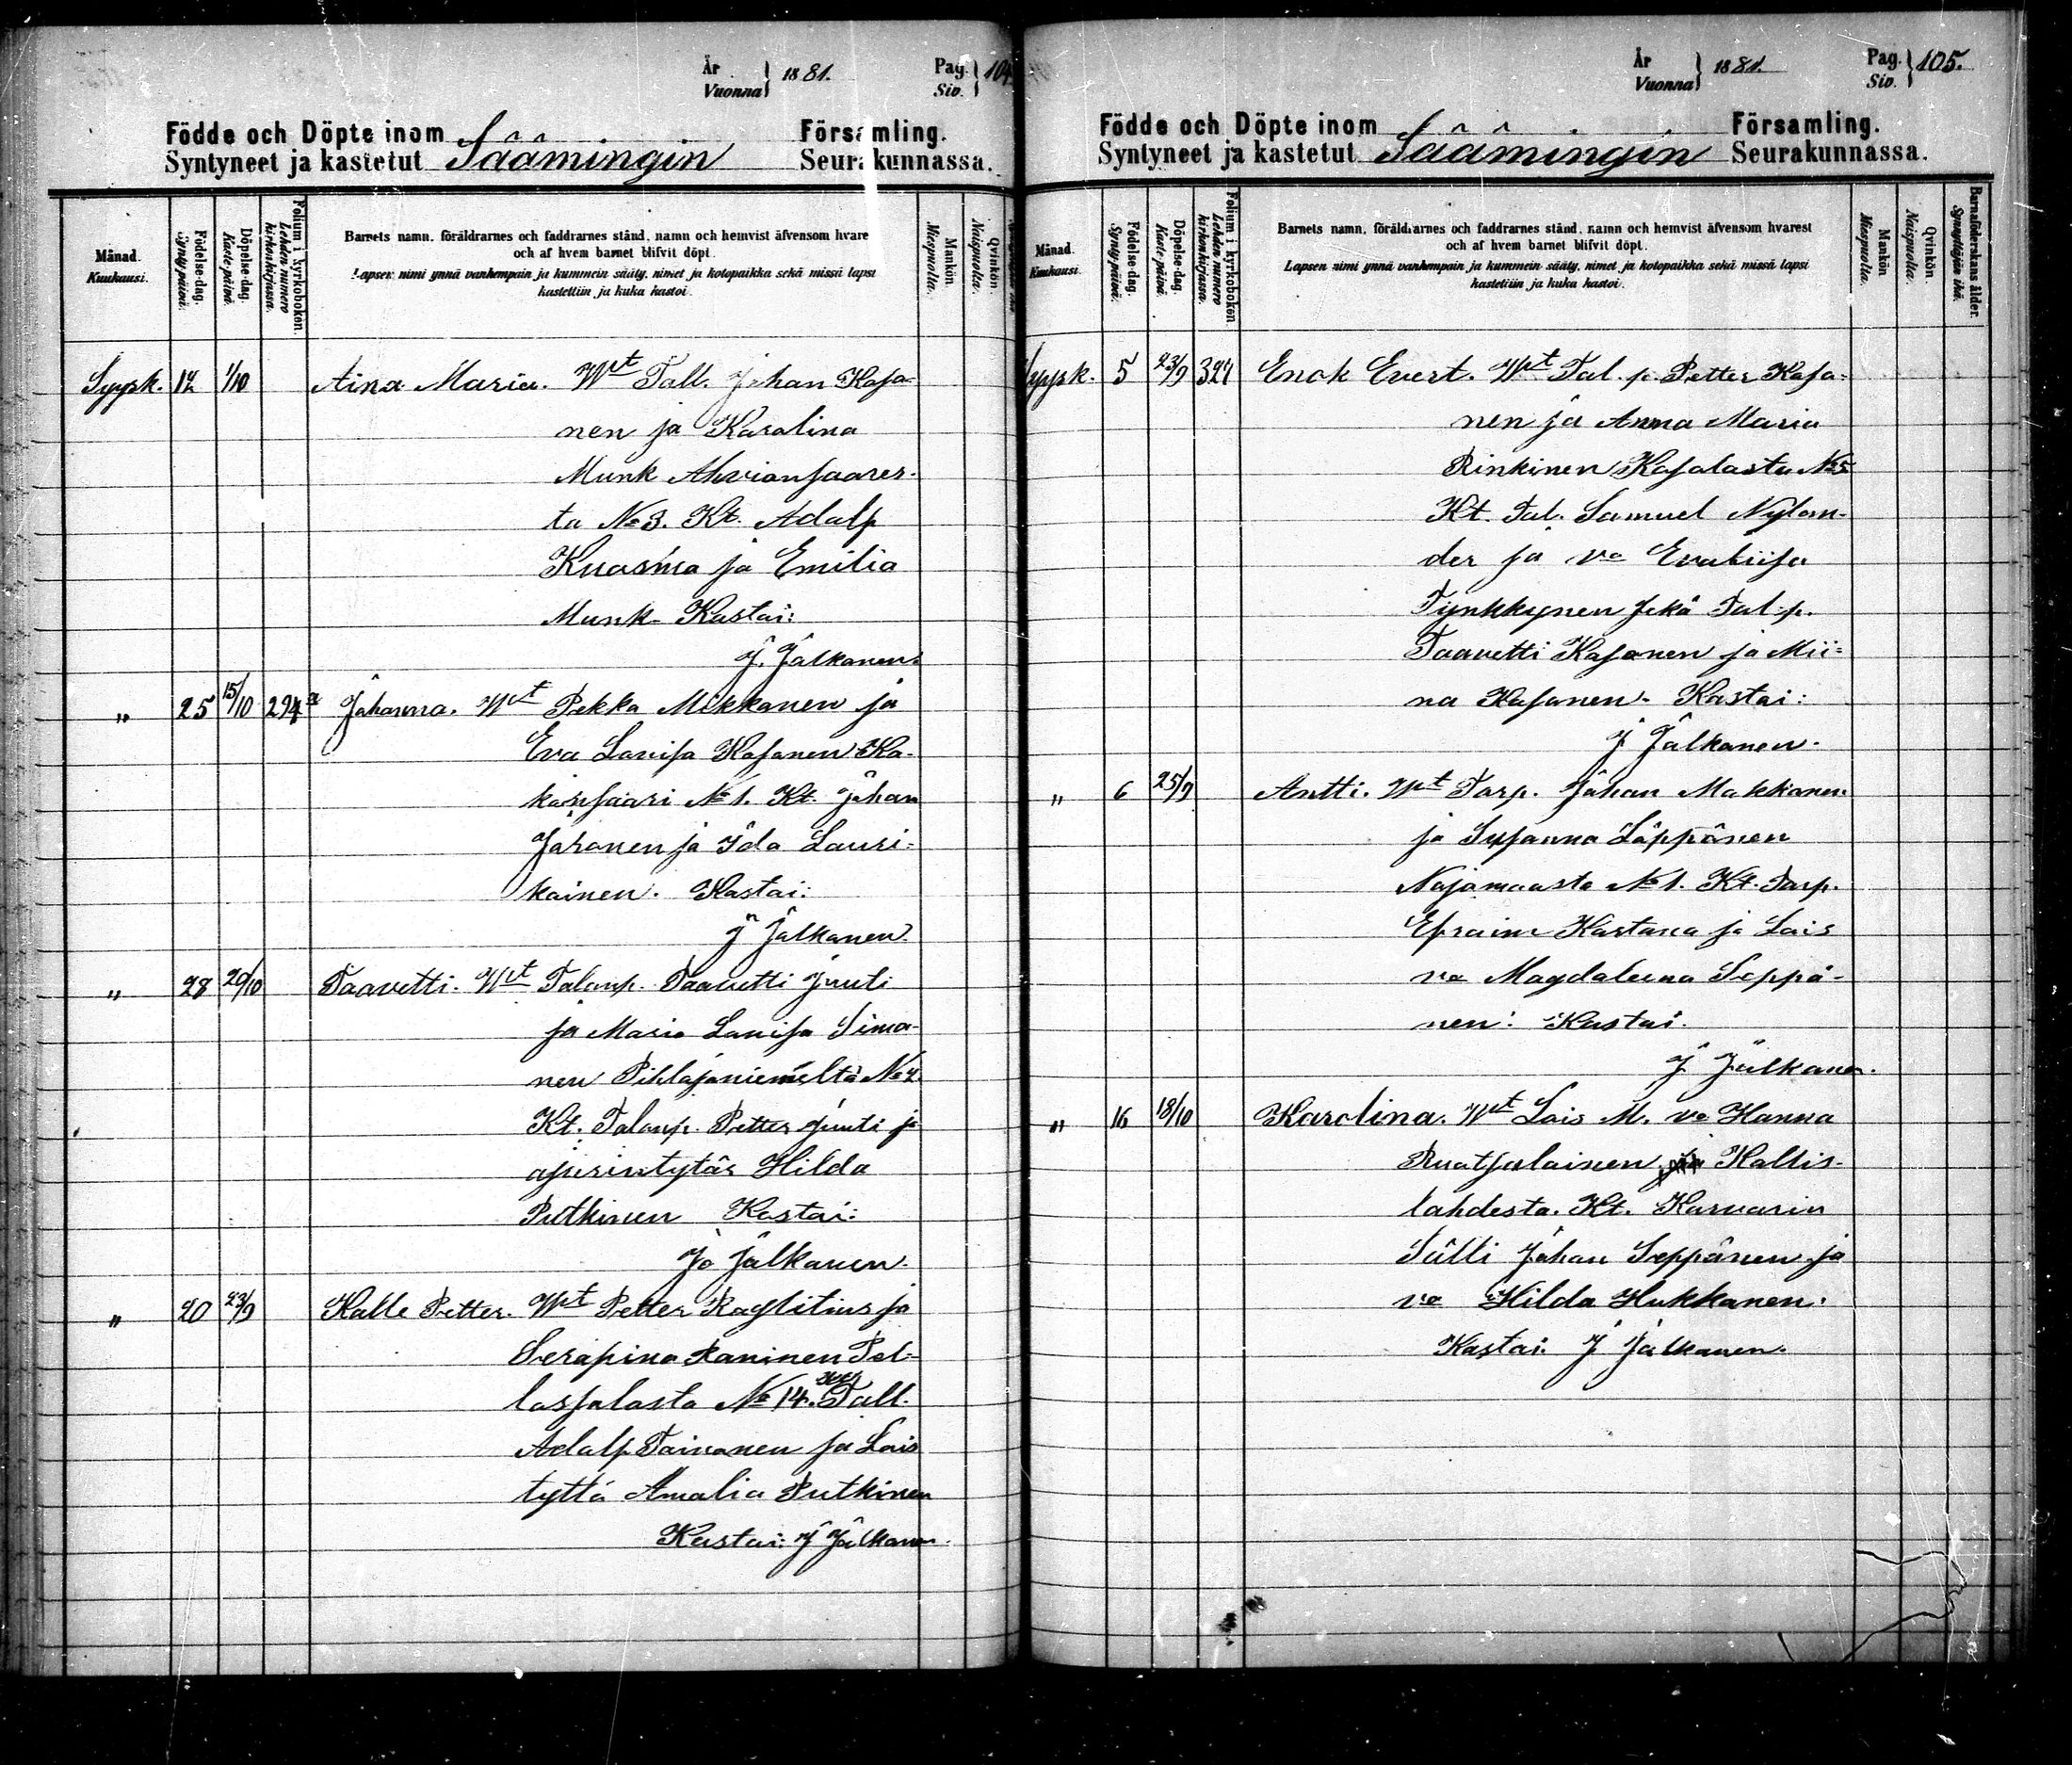 År
Vuonna } 1881.
Pag.
Siv. } 104
Födde och Döpte inom
Syntyneet ja kastetut Säämingin
Församling.
Seurakunnassa.
Månad.
Kuukausi.
Födelse-dag.
Synty päivä.
Döpelse-dag.
Kaste-päivä.
Folium i kyrkoboken.
Lehden numero
kirkonkirjassa.
Barnets namn, föräldrarnes och faddrarnes stånd, namn och hemvist äfvensom hvare
och af hvem barnet blifvit döpt.
Lapsen nimi ynnä vanhempain ja kummein sääty, nimet ja kotopaikka sekä missä lapsi
kastettiin ja kuka kastoi.
Mankön.
Miespuolia.
Qvinkön.
Naispuolia.
Syysk. 12 1/10 Aina Maria. Wt Tall. Johan Kasa-
nen ja Karolina
Munk Ahvionsaares-
ta No 3. Kt. Adolf
Kuosma ja Emilia
Munk. Kastai:
J. Jalkanen.
" 25 15/10 294 Johanna. Wt Pekka Mikkanen ja
Eva Lovisa Kasanen Ka-
konsaari No 1. Kt. Johan
Jaronen ja Ida Lauri-
kainen. Kastai:
J Jalkanen.
" 28 20/10 Taavetti. Wt Talonp. Taavetti Juuti
ja Maria Lovisa Simo-
nen Pihlajaniemeltä No 4.
Kt. Talonp. Petter Juuti ja
ajurintytär Hilda
Putkinen Kastai:
Jo Jalkanen.
" 20 23/9 Kalle Petter. Wt Petter Raglitius ja
Serapina Raninen Pel-
lossalosta No 14. Tall.
Adolf Taivanen ja Lois
tyttö Amalia Putkinen
Kastai: J Jalkanen.
År
Vuonna } 1881.
Pag.
Siv. } 105.
Födde och Döpte inom
Syntyneet ja kastetut Säämingin
Församling.
Seurakunnassa.
Månad.
Kuukausi.
Födelse-dag.
Synty päivä.
Döpelse-dag.
Kaste-päivä.
Folium i kyrkoboken
Lehden numero
kirkonkirjassa.
Barnets namn, föräldrarnes och faddrarnes stånd, namn och hemvist äfvensom hvarest
och af hvem barnet blifvit döpt.
Lapsen nimi ynnä vanhempain ja kummein sääty, nimet ja kotopaikka sekä missä lapsi
kastettiin ja kuka kastoi.
Mankön
Miespuolia.
Qvinkön.
Naispuolia.
Barnaföderskans ålder.
Synnyttäjän ikä.
Syysk. 5 23/9 327 Enok Evert. Wt Tal. p. Petter Kasa-
nen ja Anna Maria
Rinkinen Kasalasta No 5
Kt. Tal. Samuel Nylan-
der ja va Evaliisa
Tynkkynen sekä Tal. p.
Taavetti Kasanen ja Mii-
na Kasanen. Kastai:
J Jalkanen.
" 6 25/9 Antti. Wt Torp. Johan Makkonen
ja Susanna Läppänen
Nojamaasta No 1. Kt. Torp.
Efraim Kartana ja Lois
va Magdaleena Seppä-
nen. Kastai.
J Jalkanen.
" 16 18/10 Karolina. Wt Lois M. va Hanna
Ruotsalainen Kallis-
lahdesta. Kt. Karvarin
Sälli Johan Seppänen ja
va Hilda Hukkanen.
Kastai. J Jalkanen.